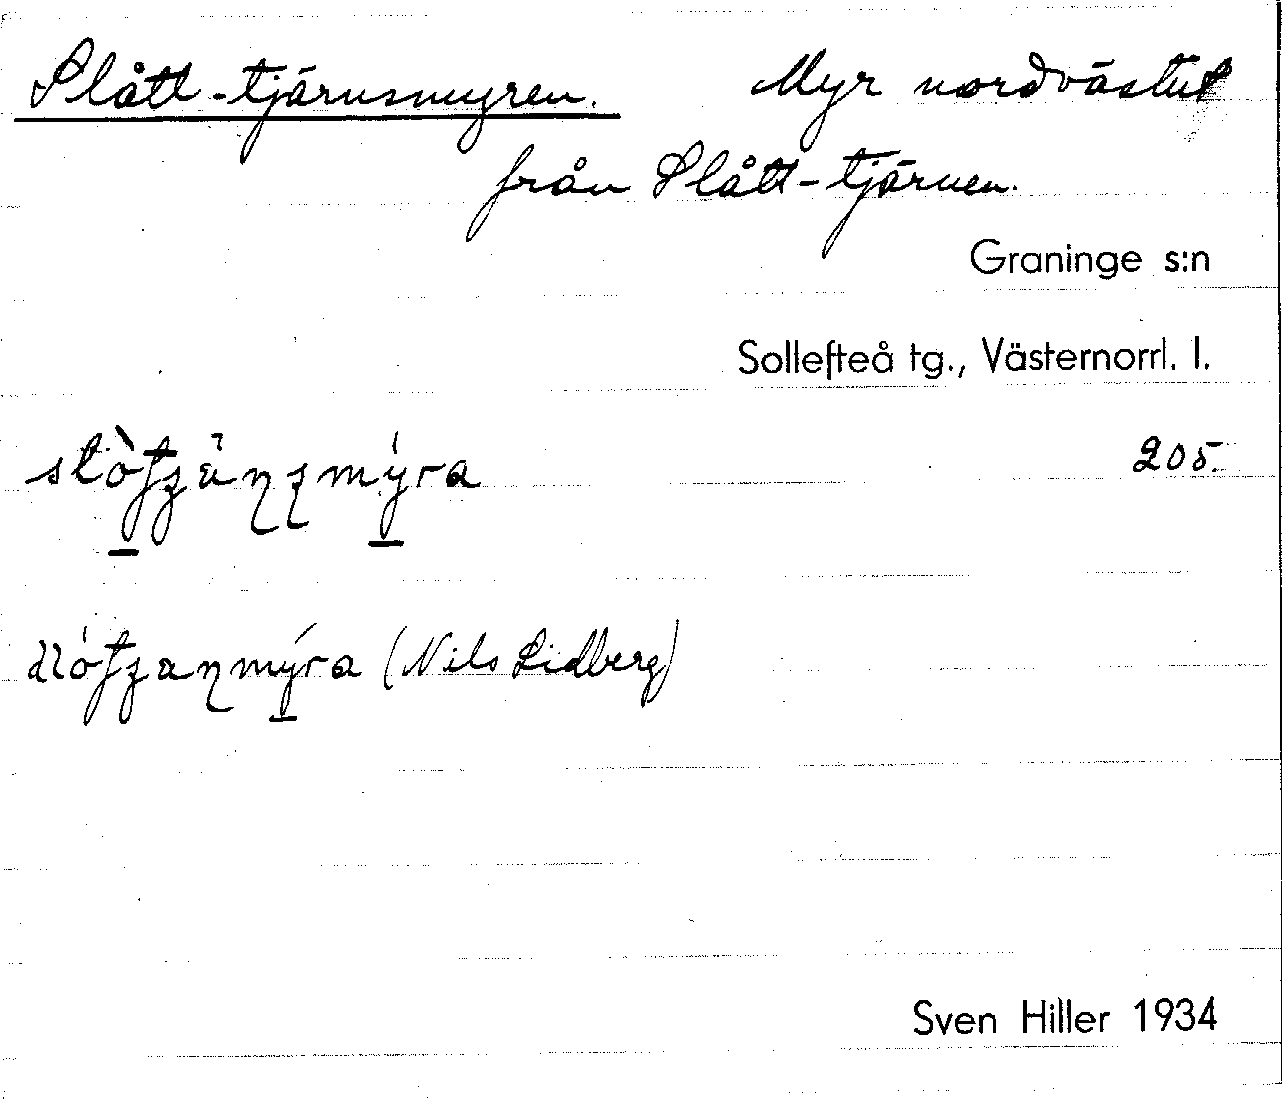 Slått-tjärnsmyren. Myr nordväster
från Slått-tjärnen.
Graninge s:n
Sollefteå tg., Västernorrl. l.
205.
(Nils Lidberg)
Sven Hiller 1934